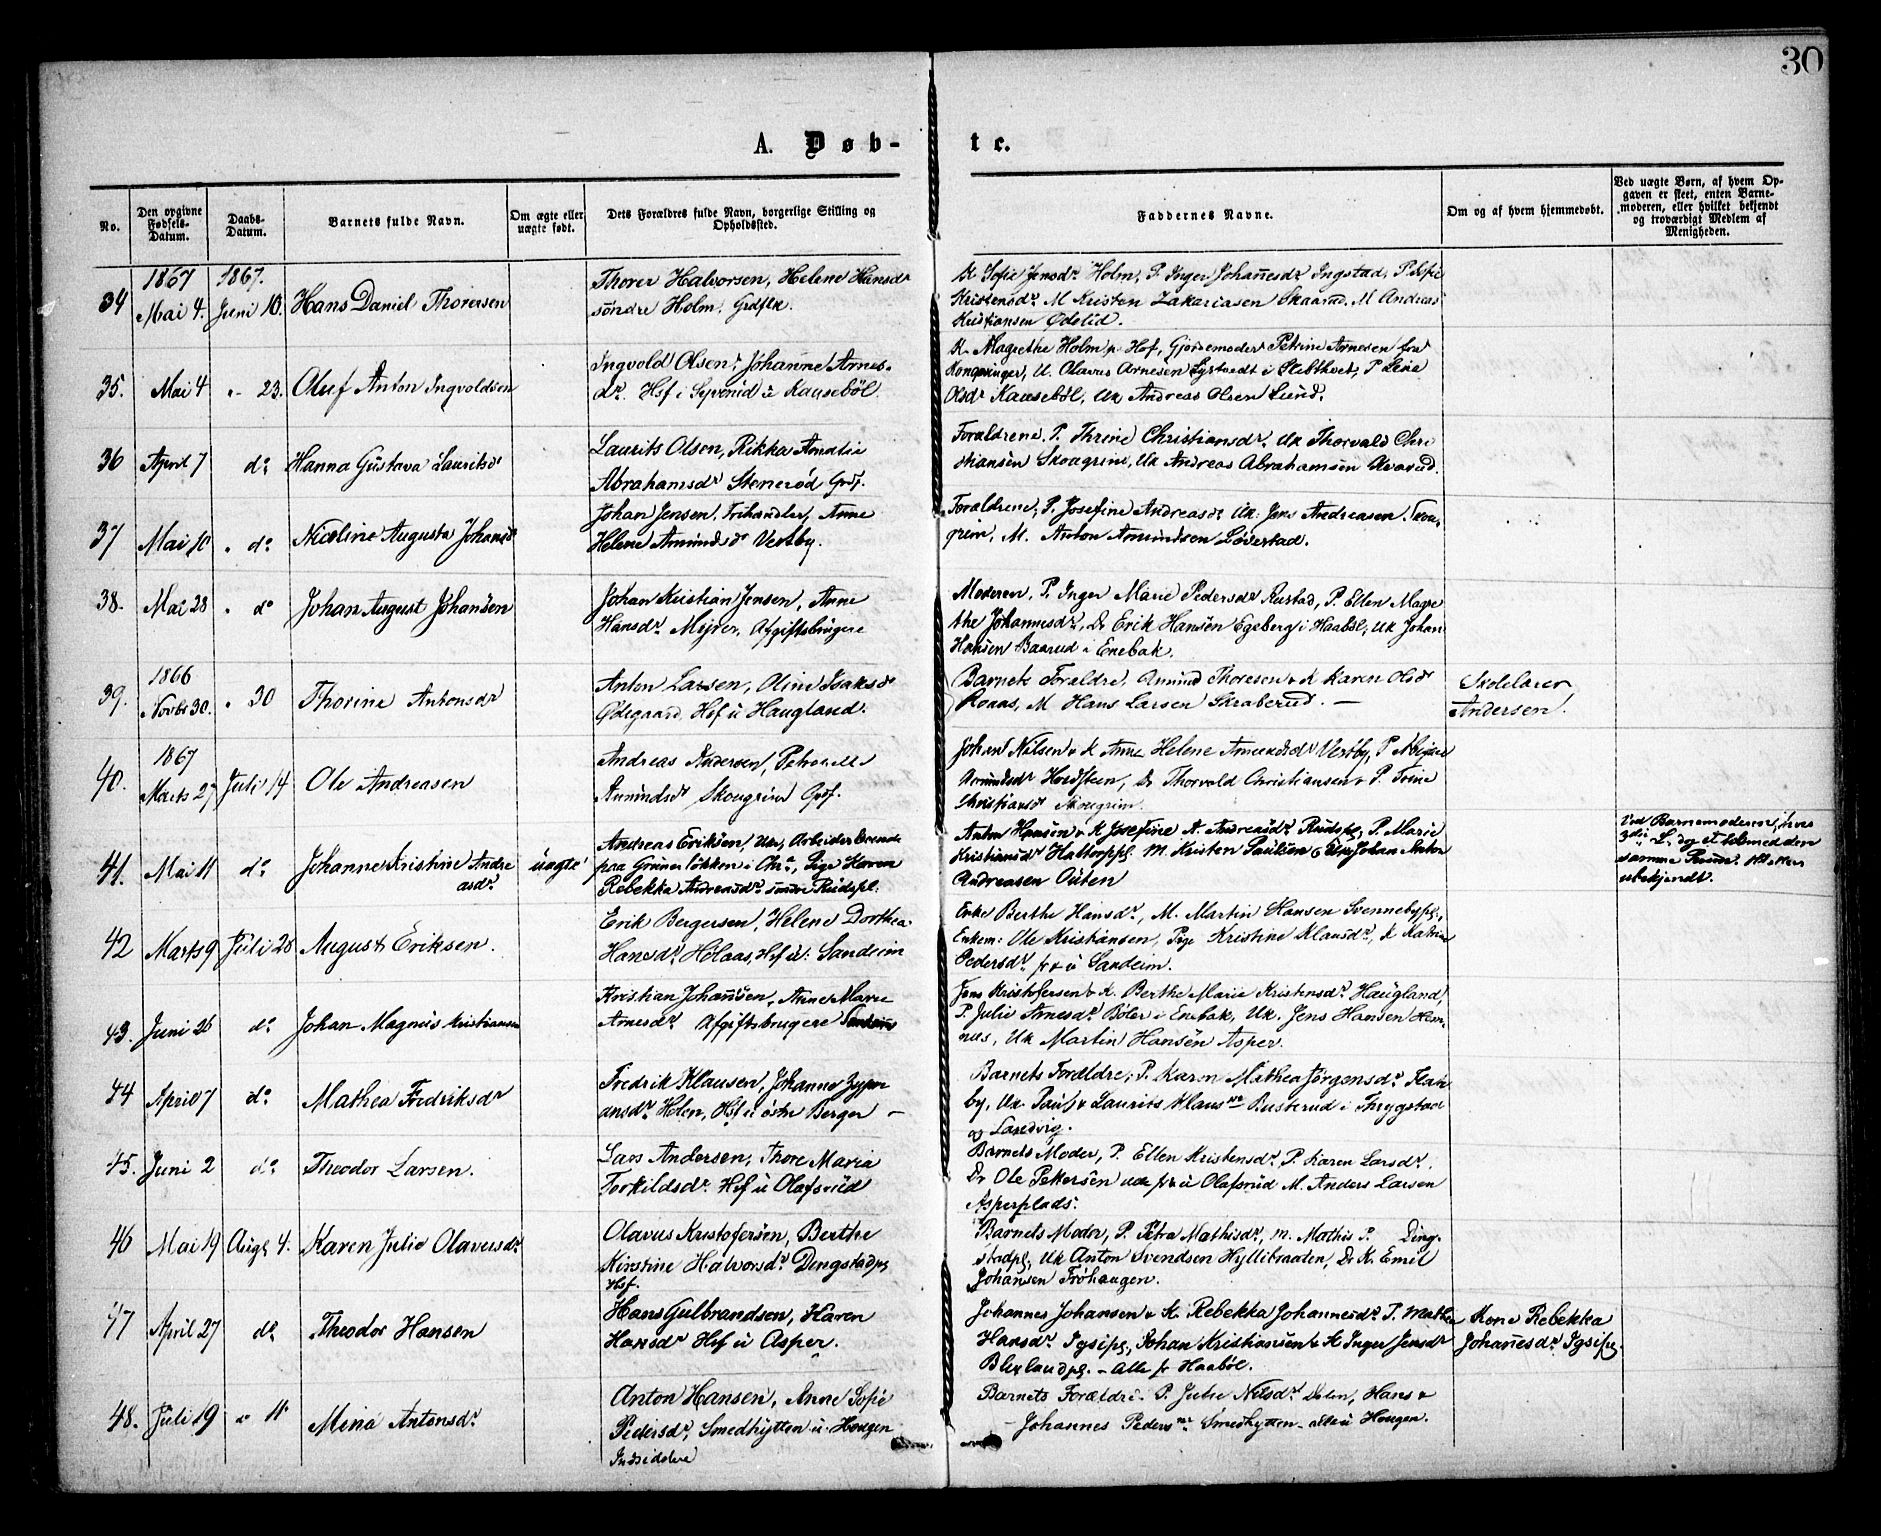 30
A. Døb- te.
No.
Den opgivne Fødsels-Datum.
Daabs-Datum.
Barnets fulde Navn.
Om ægte eller uægte født.
Dets Forældres fulde Navn, borgerlige Stilling og Opholdssted.
Faddernes Navne.
Om og af hvem hjemmedøbt.
Ved uægte Børn, af hvem Opgaven er skeet, enten Barnemoderen, eller hvilket bekjendt og troværdigt Medlem af Menigheden.
1867 1867.
34 Mai 4. Juni 10. Hans Daniel Thorersen
Thorer Halvorsen, Helene Hansdr
søndre Holm. Grdflk.
K. Sofie Jensdr Holm, P. Inger Johañesdr Ingstad, P.
Kristensdr, M Kristen Zakariasen Skaarud, M Andreas
Kristiansen Ødelid.
35. Mai 4 " 23. Oluf Anton Ingvoldsen
Ingvold Olsen, Johanne Arnes-
dr. Hsf i u Kausebøl.
K. Magrethe Holm Hof, Gjordemoder Petrine Arnesen fra
Kongsvinger, U. Olavus Arnesen i P Line
Olsdr Kausebøl, Uk Andreas Olsen Lund.
36 April 7 do Hanna Gustava Lauritsdr
Laurits Olsen, Rikka Amalie
Abrahamsdr Stenerød Grdf.
Forældrene, P. Thrine Christiansdr. Uk Thorvald Chri
stiansen Skougrim, Uk Andreas Abrahamsen
37 Mai 10 " do Nicoline Augusta Johansdr
Johan Jensen, Frihandler, Anne
Helene Amundsdr Vestby.
Forældrene, P. Josefine Andreasdr Uk. Jens Andreasen Skou-
grim, M. Anton Amundsen Løvestad.
38. Mai 28 " do Johan August Johansen
Johan Kristian Jensen, Anne
Hansdr. Mejrer, Afgiftsbrugere
Moderen, P. Inger Marie Pedersdr Rustad, P. Ellen Magre
the Johannesdr, Dr Erik Hansen Egeberg i Haabøl, Uk Johan
Hansen Baarud i Enebak.
1866
39. Novbr 30. " 30 Thorine Antonsdr
Anton Larsen, Oline Isaksdr
Ødegaard, Hsf u Haugland.
Barnets Forældre, Amund Thoresen & K Karen Olsdr
Roaas, M Hans Larsen Skraberud. —
Skolelærer
Andersen.
1867
40. Marts 27 Juli 14 Ole Andreasen
Andreas Andersen, Petronelle
Amundsdr Skougrim Grdf.
Johan Nilsen & K Anne Helene Amundsdr Vestby, P
Amundsdr Dr Thorvald Christiansen & P. Trine
Christiansdr Skougrim.
41. Mai 11 do Johanne Kristine Andre
asdr.
uægte
Andreas Eriksen, Uk, Arbeider boende
paa Grünerløkken i Chra, Pige Karen
Rebekka Andreasdr søndre Rudspl.
Anton Hansen & K Josefine A. Andreasdr Rudspl, P. Marie
Kristiansdr M. Kristen Paulsen & Uk Johan Anton
Andreasen Outen
Ved Barnemoderen, hvis
3die L. og et
samme
ubekjendt.
42 Marts 9 Juli 28 August Eriksen.
Erik Bergersen, Helene Dorthea
Hansdr, Holaas, Hsf u: Sandeim
Enke Berthe Hansdr, M. Martin Hansen Svennebypl.,
Enkem: Ole Kristiansen, Pige Kristine Klausdr, K Katrine
Pedersdr fr & u Sandeim.
43. Juni 26 do Johan Magnus Kristiansen
Kristian Johañsen, Anne Marie
Arnesdr. Afgiftsbrugere Sandeim
Jens Kristofersen & K. Berthe Marie Kristensdr. Haugland,
P. Julie Arnesdr Bøler i Enebak, Uk. Jens Hansen Hem-
nes, Uk Martin Hansen Asper.
44 April 7 do. Mathea Fredriksdr
Fredrik Klausen, Johanne
ansdr. Holen, Hsf u østre Berger —
Barnets Forældre, P. Karen Mathea Jørgensdr. Flak-
by, Uk. Paul & Laurits Klaus Busterud i Thrygstad
og
45. Juni 2 do. Theodor Larsen.
Lars Andersen, Thore Maria
Torkildsdr. Hsf u Olafsrud
Barnets Moder, P. Ellen Kristensdr. P. Karen Larsdr.
Dr Ole Pettersen fr & u Olafsrud M. Anders Larsen
Asperplads.
46 Mai 19 Aug. 4. Karen Julie Olavusdr.
Olavus Kristofersen, Berthe
Kirstine Halvorsdr. Dingstadpl
Hsf.
Barnets Moder, P. Petra Mathisdr, M. Mathis P. Ding-
stadpl, Uk Anton Svendsen Hyllibraaten, Dr K. Emil
Johansen Frøhaugen.
47 April 27 do Theodor Hansen
Hans Gulbrandsen, Karen
Hansdr Hsf u Asper.
Johannes Johansen & K. Rebekka Johannesdr. P. Mathea
Hansdr. Igsipl, Johan Kristiansen & K Inger Jensdr
— Alle fr Haabøl.
Kone Rebekka
Johañesdr Igsipl.
48. Juli 9 " 11 Mina Antonsdr.
Anton Hansen, Anne Sofie
Pedersdr, Smedhytten u. Hougen
Indsiddere
Barnets Forældre, P. Julie Nilsdr. Dalen, Hans &
— Johannes Peders Smedhytten alle u Hougen.